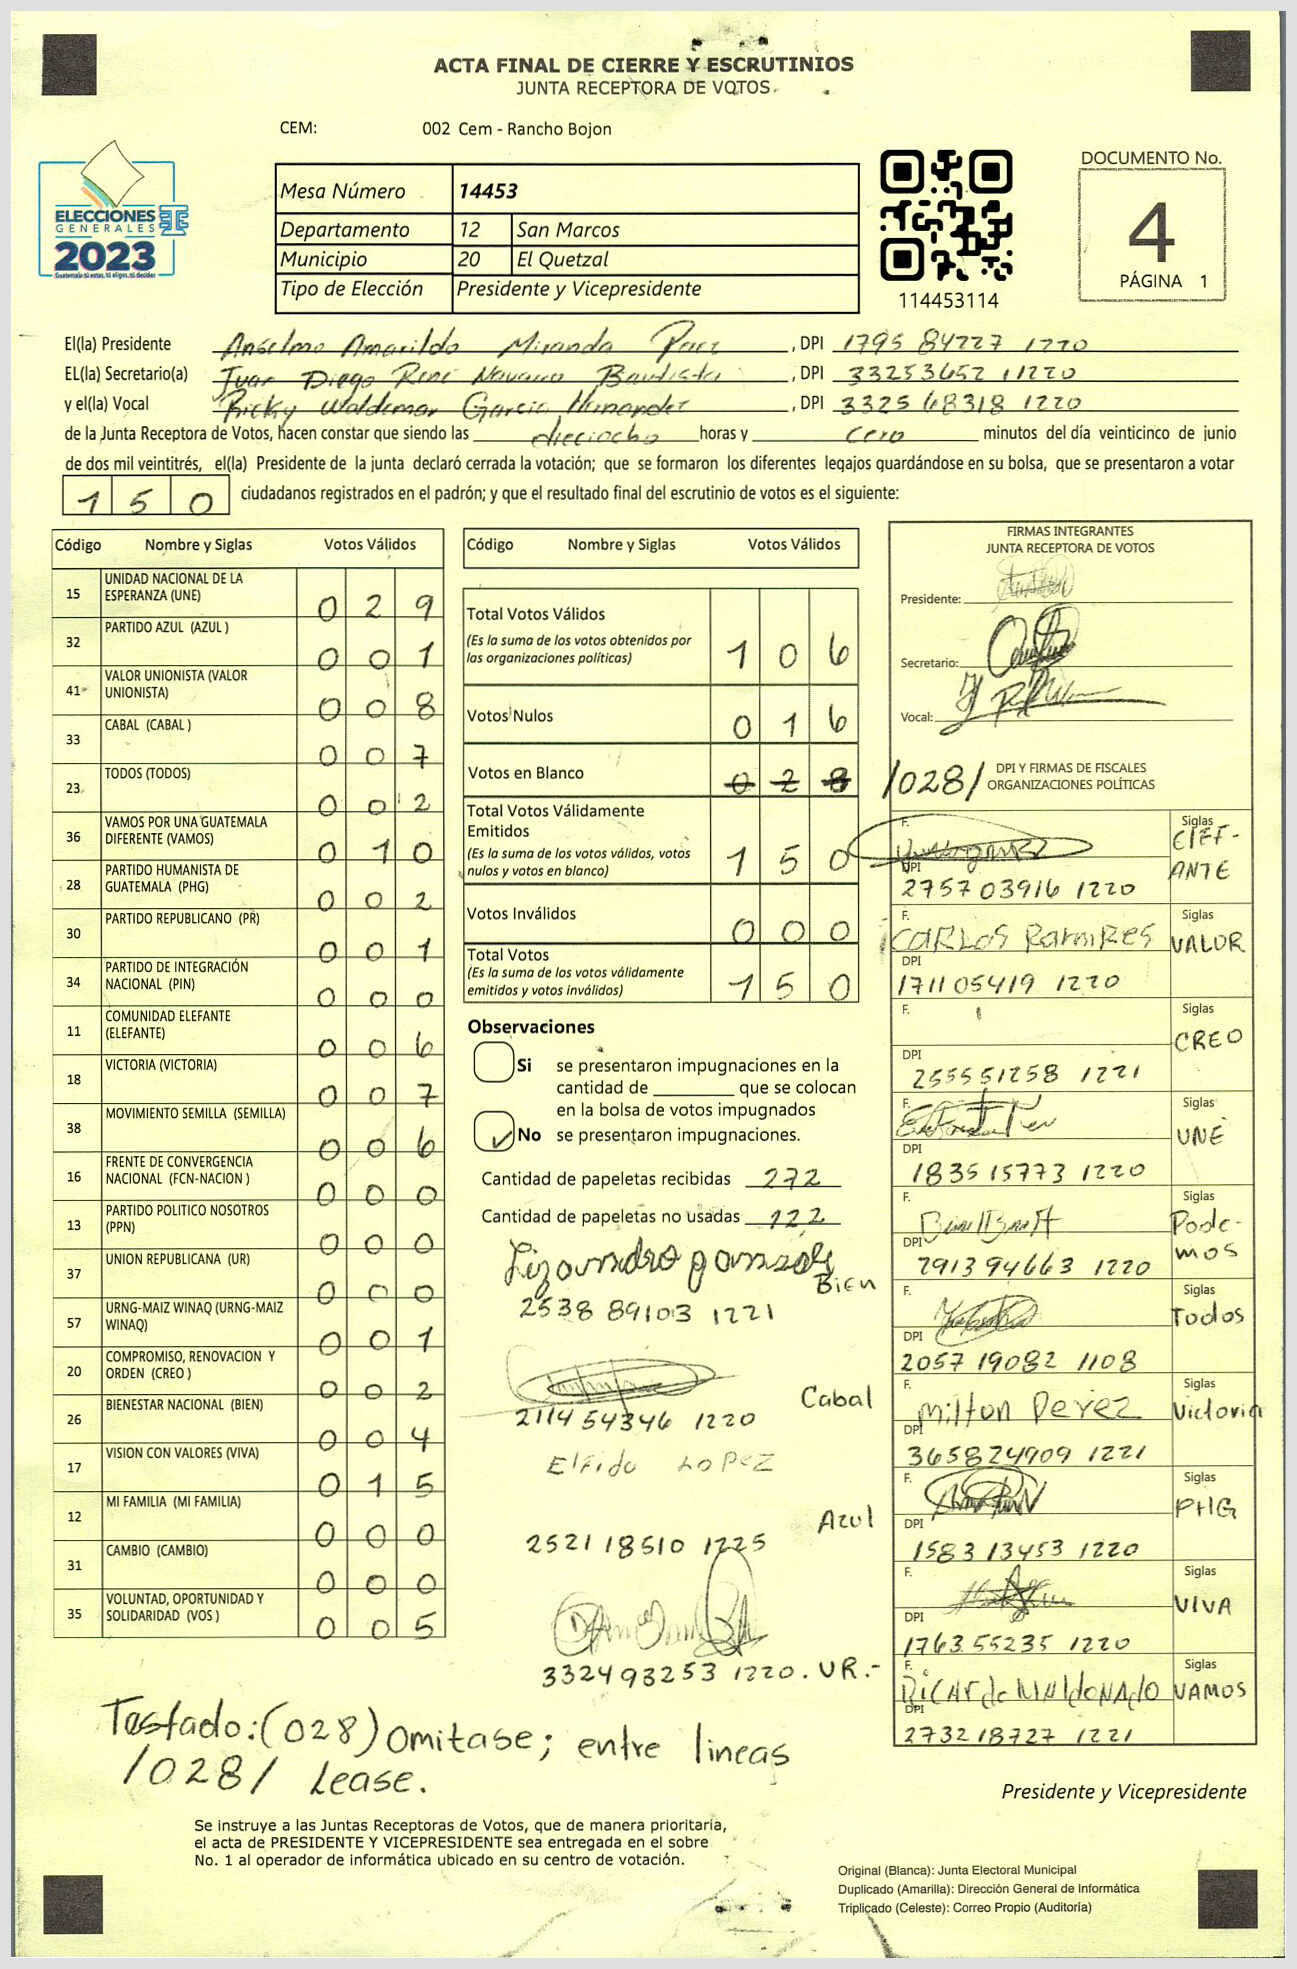 ACTA FINAL DE CIERRE Y ESCRUTINIOS
JUNTA RECEPTORA DE VOTOS
CEM: 002 Cem - Rancho Bojon
ELECCIONES
GENERALES
2023
Mesa Número 14453
Departamento 12 San Marcos
Municipio 20 El Quetzal
Tipo de Elección Presidente y Vicepresidente
114453114
DOCUMENTO No.
4
PÁGINA 1
El(la) Presidente Anselmo Amarildo Miranda Perez, DPI 1795 84727 1220
EL(la) Secretario(a) Ivar Diego René Navarro Bautista, DPI 33253652 11220
y el(la) Vocal Ricky Waldemar Garcia Hernandez, DPI 3325 68318 1220
de la Junta Receptora de Votos, hacen constar que siendo las dieciocho horas y cero minutos del día veinticinco de junio
de dos mil veintitrés, el(la) Presidente de la junta declaró cerrada la votación; que se formaron los diferentes legajos guardándose en su bolsa, que se presentaron a votar
150 ciudadanos registrados en el padrón; y que el resultado final del escrutinio de votos es el siguiente:
Código Nombre y Siglas Votos Válidos
15 UNIDAD NACIONAL DE LA ESPERANZA (UNE) 029
32 PARTIDO AZUL (AZUL ) 001
41 VALOR UNIONISTA (VALOR UNIONISTA) 008
33 CABAL (CABAL ) 007
23 TODOS (TODOS) 002
36 VAMOS POR UNA GUATEMALA DIFERENTE (VAMOS) 010
28 PARTIDO HUMANISTA DE GUATEMALA (PHG) 002
30 PARTIDO REPUBLICANO (PR) 001
34 PARTIDO DE INTEGRACIÓN NACIONAL (PIN) 000
11 COMUNIDAD ELEFANTE (ELEFANTE) 006
18 VICTORIA (VICTORIA) 007
38 MOVIMIENTO SEMILLA (SEMILLA) 006
16 FRENTE DE CONVERGENCIA NACIONAL (FCN-NACION ) 000
13 PARTIDO POLITICO NOSOTROS (PPN) 000
37 UNION REPUBLICANA (UR) 000
57 URNG-MAIZ WINAQ (URNG-MAIZ WINAQ) 001
20 COMPROMISO, RENOVACION Y ORDEN (CREO ) 002
26 BIENESTAR NACIONAL (BIEN) 004
17 VISION CON VALORES (VIVA) 015
12 MI FAMILIA (MI FAMILIA) 000
31 CAMBIO (CAMBIO) 000
35 VOLUNTAD, OPORTUNIDAD Y SOLIDARIDAD (VOS ) 005
Código Nombre y Siglas Votos Válidos
Total Votos Válidos 106
(Es la suma de los votos obtenidos por
las organizaciones políticas)
Votos Nulos 016
Votos en Blanco 028 /028/
Total Votos Válidamente
Emitidos 150
(Es la suma de los votos válidos, votos
nulos y votos en blanco)
Votos Inválidos 000
Total Votos 150
(Es la suma de los votos válidamente
emitidos y votos inválidos)
Observaciones
Si se presentaron impugnaciones en la
cantidad de que se colocan
en la bolsa de votos impugnados
No se presentaron impugnaciones.
Cantidad de papeletas recibidas 272
Cantidad de papeletas no usadas 122
Bien
2538 89103 1221
Cabal
2114 54346 1220
Elfido LoPez
Azul
2521 18510 1225
332493253 1220. UR.-
FIRMAS INTEGRANTES
JUNTA RECEPTORA DE VOTOS
Presidente:
Secretario:
Vocal:
DPI Y FIRMAS DE FISCALES
ORGANIZACIONES POLÍTICAS
F. Siglas ClEF-
ANTE
DPI 2757 03916 1220
F. CARLOS RamiRES Siglas VALOR
DPI 1711 05419 1220
F. Siglas CREO
DPI 255551258 1221
F. Siglas UNE
DPI 1835 15773 1220
F. Siglas Pode-
mos
DPI 2913 94663 1220
F. Siglas Todos
DPI 2057 19082 1108
F. Milton Perez Siglas Victoria
DPI 365824909 1221
F. Siglas PHG
DPI 1583 13453 1220
F. Siglas VIVA
DPI 1763 55235 1220
F. RiCARdo MALdoNAdo Siglas VAMOS
DPI 2732 18727 1221
Testado: (028) Omitase; entre lineas
/028/ Lease.
Presidente y Vicepresidente
Se instruye a las Juntas Receptoras de Votos, que de manera prioritaria,
el acta de PRESIDENTE Y VICEPRESIDENTE sea entregada en el sobre
No. 1 al operador de informática ubicado en su centro de votación.
Original (Blanca): Junta Electoral Municipal
Duplicado (Amarilla): Dirección General de Informática
Triplicado (Celeste): Correo Propio (Auditoría)